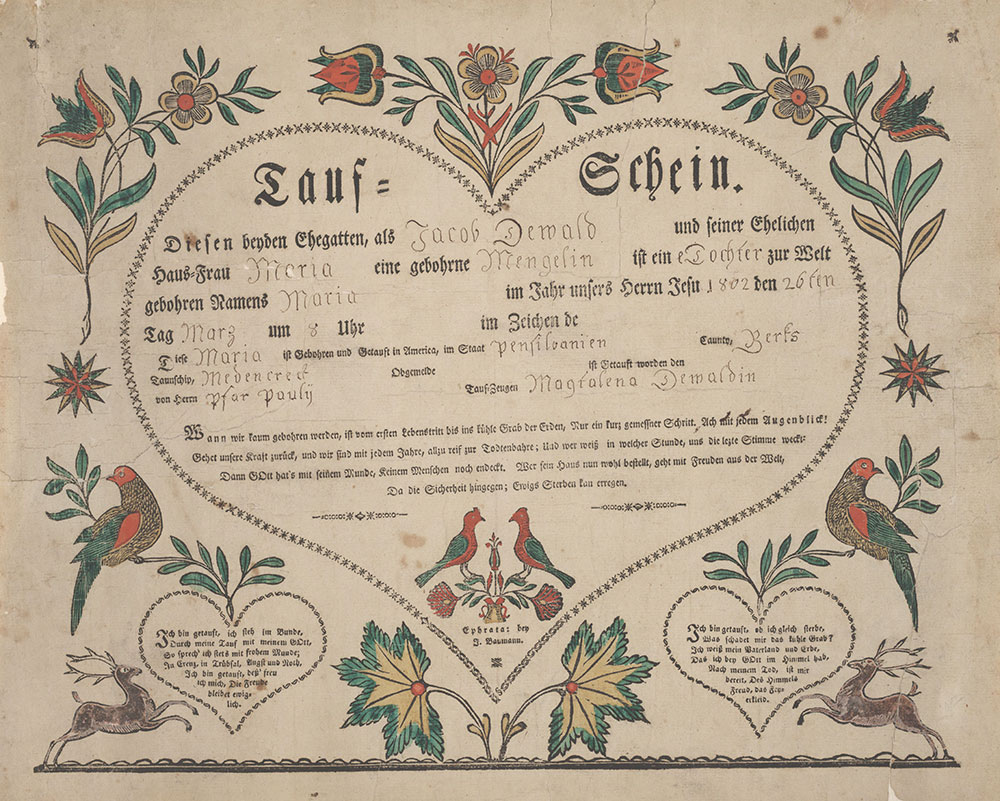 Tauf= Schein.
Diesen beyden Ehegatten, als Jacob Dewald und seiner Ehelichen
Haus=Frau Maria eine gebohrne Mengelin ist ein e Tochter zur Welt
gebohren Namens Maria im Jahr unsers Herrn Jesu 1802 den 26ten
Tag Marz um 8 Uhr im Zeichen de
Diese Maria ist Gebohren und Getauft in America, im Staat Pensilvanien Caunty, Berks
Taunschip, Medencreck Obgemelde ist Getauft worden den
von Herrn Pfar Pauly Tauf=Zeugen Magtalena Dewaldin
Wann wir kaum gebohren werden, ist vom ersten Lebenstritt bis ins kühle Grab der Erden, Nur ein kurz gemessner Schritt. Ach mit jedem Augenblick!
Gehet unsre Kraft zurück, und wir sind mit jedem Jahre, allzu reif zur Todtenbahre; Und wer weiß in welcher Stunde, uns die lezte Stimme weckt:
Dann GOtt hat's mit seinem Munde, Keinem Menschen noch endeckt. Wer sein Haus nun wohl bestellt, geht mit Freuden aus der Welt,
Da die Sicherheit hingegen; Ewigs Sterben kan erregen.
Ephrata: bey
J. Baumann.
Ich bin getauft, ich steh im Bunde,
Durch meine Tauf mit meinem GOtt,
So sprech' ich stets mit frohem Munde;
In Creuz, in Trübsal, Angst und Noth,
Ich bin getauft, deß' freu
ich mich, Die Freude
bleibet ewig=
lich.
Ich bin getauft, ob ich gleich sterbe,
Was schadet mir das kühle Grab?
Ich weiß mein Vaterland und Erbe,
Das ich bey GOtt im Himmel hab,
Nach meinem Tod, ist mir
bereit, Des Himmels
Freud, das Fey=
erkleid.